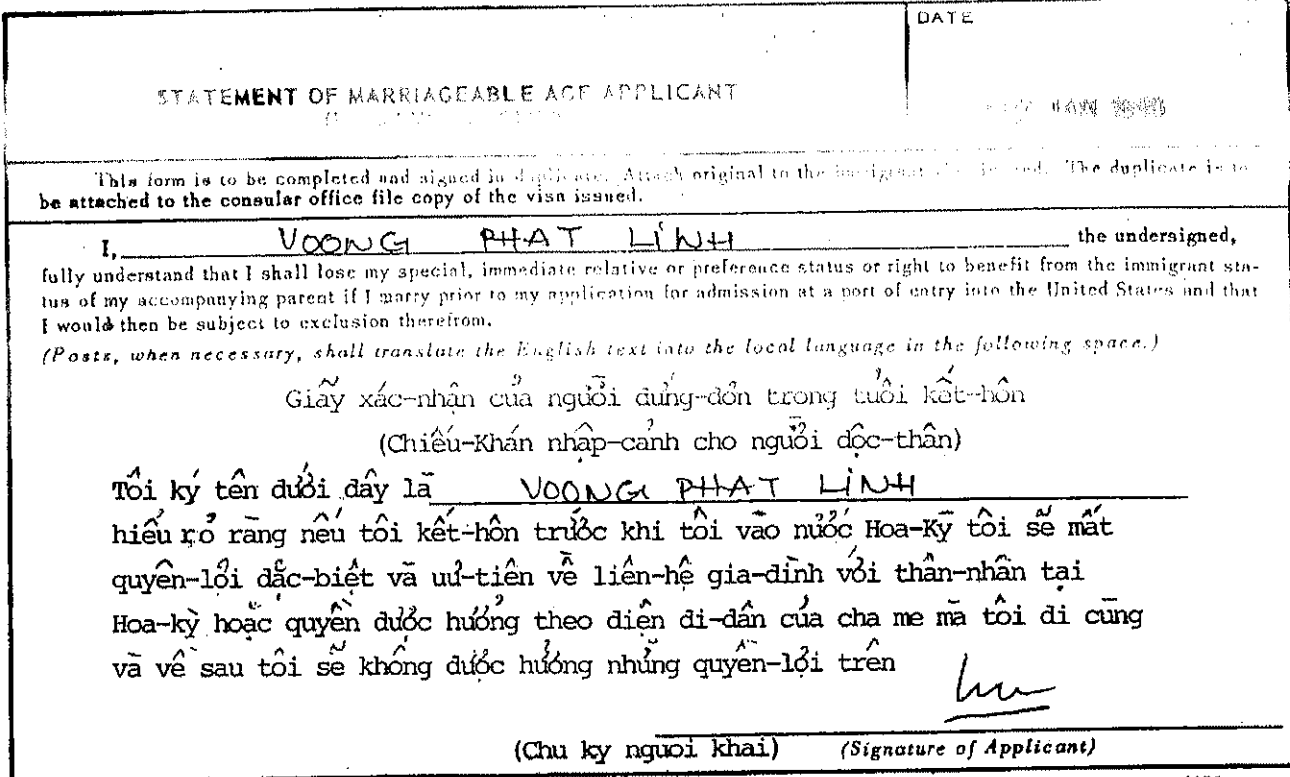 DATE
STATEMENT OF MARRIAGEABLE AGE APPLICANT
JAN
This form is to be completed and signed in duplicate. Attach original to the immigrant visa issued. The duplicate is to
be attached to the consular office file copy of the visa issued.
I, VOONG PHAT LINH the undersigned,
fully understand that I shall lose my special, immediate relative or preference status or right to benefit from the immigrant sta-
tus of my accompanying parent if I marry prior to my application for admission at a port of entry into the United States and that
I would then be subject to exclusion therefrom.
(Posts, when necessary, shall translate the English text into the local language in the following space.)
Giẫy xác-nhận củả ngưồi dưng-dỏn trong tuổi kết-hôn
(Chiếu-Khán nhập-cảnh cho ngưồi dộc-thân)
Tôi ký tên dưối dây lã VOONG PHAT LÍNH
hiểu rỏ rãng nếu tôi kết-hôn trước khi tôi vào nước Hoa-Kỹ tôi sẽ mất
quyên-lội dặc-biệt vã uư-tiên về liên-hệ gia-dình vối thân-nhân tại
Hoa-kỳ hoặc quyền dước hưởng theo diện di-dân của cha me mã tôi di cũng
và về sau tôi sẽ không dước hưởng nhửng quyền-lội trên
(Chu ky nguoi khai) (Signature of Applicant)